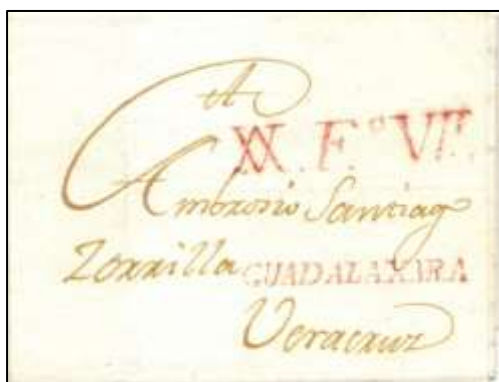 A
XX. F.º VII.
Ambrosio Santiago
Zorrilla GUADALAXARA
Veracruz